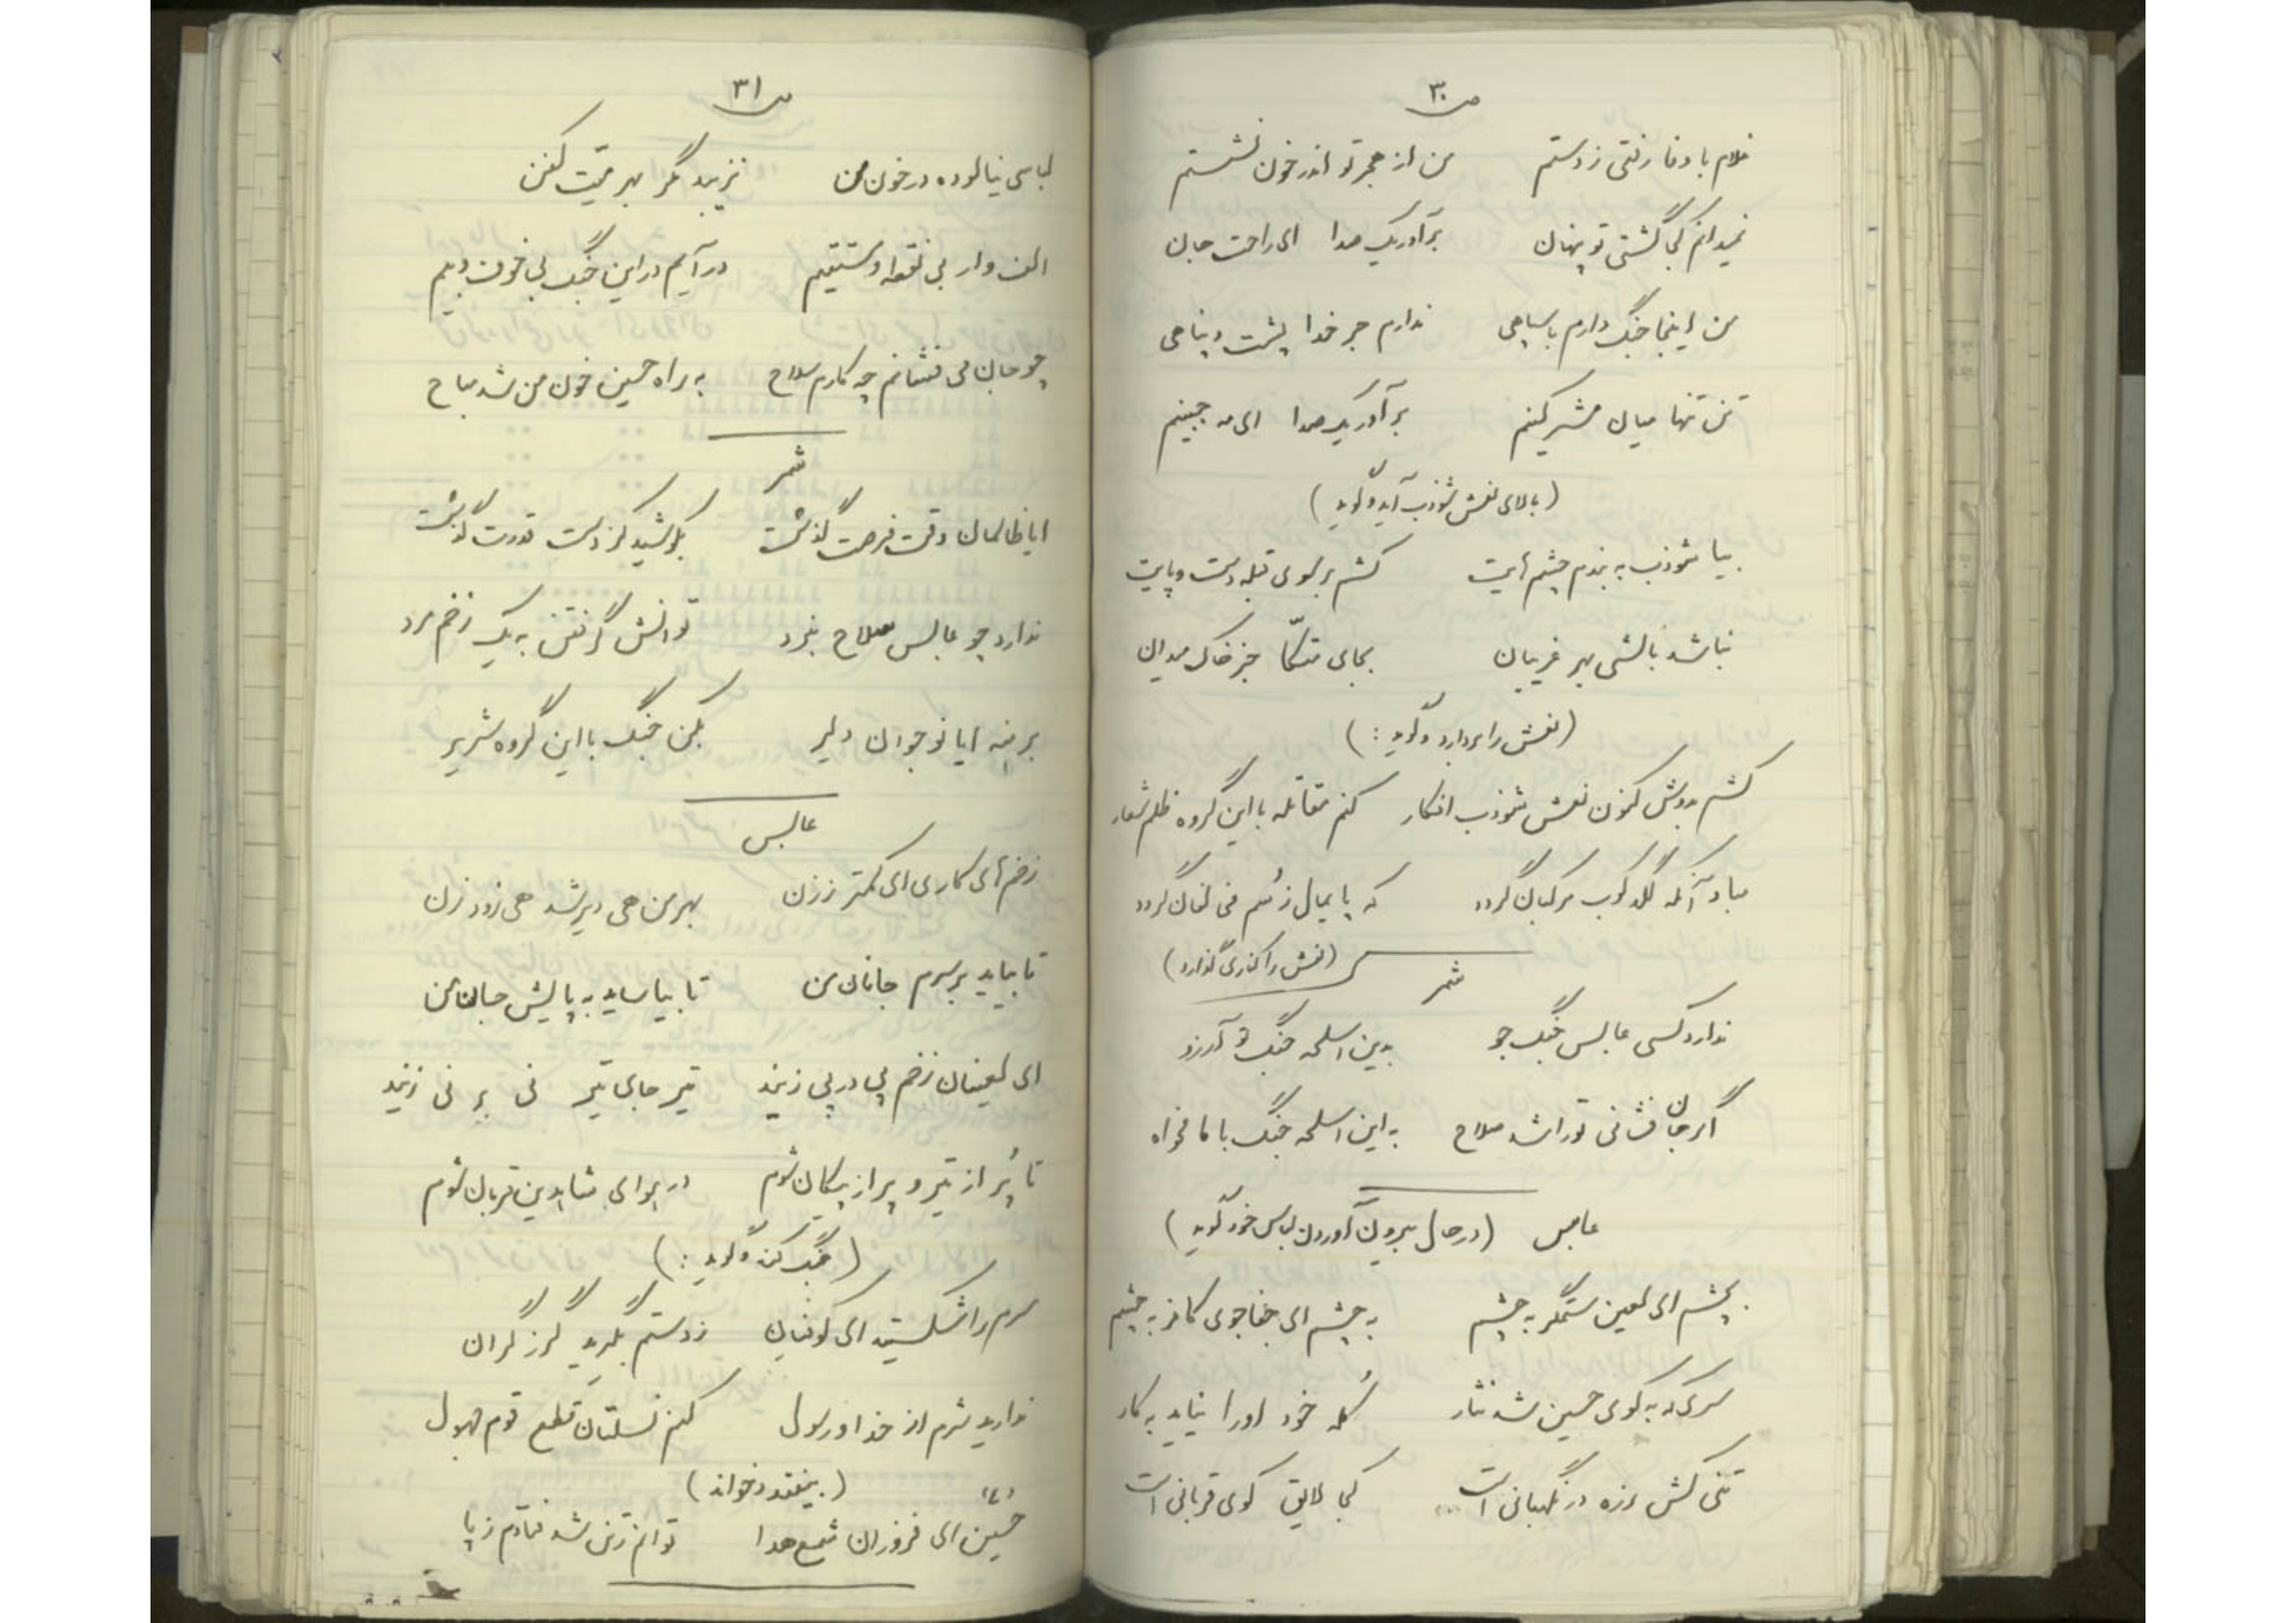 ص ۳۰
غلام با وفا رفتی ز دستم من از هجر تو اندر خون نشستم
نمیدانم کجا گشتی تو پنهان برآور یک صدا ای راحت جان
من اینجا جنگ دارم با سپاهی ندارم جز خدا پشت و پناهی
تن تنها میان مشرکینم برآور یک صدا ای مه جبینم
(بالای نعش شوذب آید و گوید)
بیا شوذب به بندم چشمهایت کشم بر سوی قبله دست و پایت
نباشد بالشی بهر غریبان بجای متکّا جز خاک میدان
(نعش را بردارد و گوید :)
کشم بدوش کنون نعش شوذب افکار کنم مقاتله با این گروه ظلم شعار
مباد آنکه لگدکوب مرکبان گردد که پایمال ز سُم گردد
(نعش را کناری گذارد)
شمر
ندارد کسی عابس جنگ جو بدین اسلحه جنگ تو آرزو
اگر جان فشانی تو را شد صلاح به این اسلحه جنگ با ما نخواه
عابس (در حال بیرون آوردن لباس خود گوید)
بچشم ای لعین ستمگر به چشم به چشم ای جفاجوی کافر به چشم
سری که به کوی حسین شد نثار کُله خود او را نیاید به کار
تنی کش زره در نگهبانی است کجا لایق کوی قربانی است
ص ۳۱
لباسی نیالوده در خون من نزیبد مگر بهر میّت کفن
الف وار بی نقطه و مستقیم در آیم در این جنگ بی خوف و بیم
چو جان می فشانم چه کارم سلاح به راه حسین خون من شد مباح
شمر
ایا ظالمان وقت فرصت گذشت بکوشید کز دست قدرت گذشت
ندارد چو عابس سلاح نبرد توانش گرفتن به یک زخم مرد
برهنه ایا نوجوان دلیر بکن جنگ با این گروه شریر
عابس
زخمهای کاری ای کمتر ز زن بهر من هی دیر شد هی زود زن
تا بیاید بر سرم جانان من تا بیاساید به پایش جان من
ای لعینان زخم پی در پی زنید تیر جای تیر نی بر نی زنید
تا پُر از تیر و پر از پیکان شوم در هوای شاه دین قربان شوم
(جنگ کند و گوید :)
سرم را شکستید ای کوفیان ز دستم بگیرید گرز گران
ندارید شرم از خدا و رسول کنم نسلتان قطع قوم جهول
(بیفتد و بخواند)
حسین (ع) ای فروزان شمع هدا توانم ز تن شد فتادم ز پا